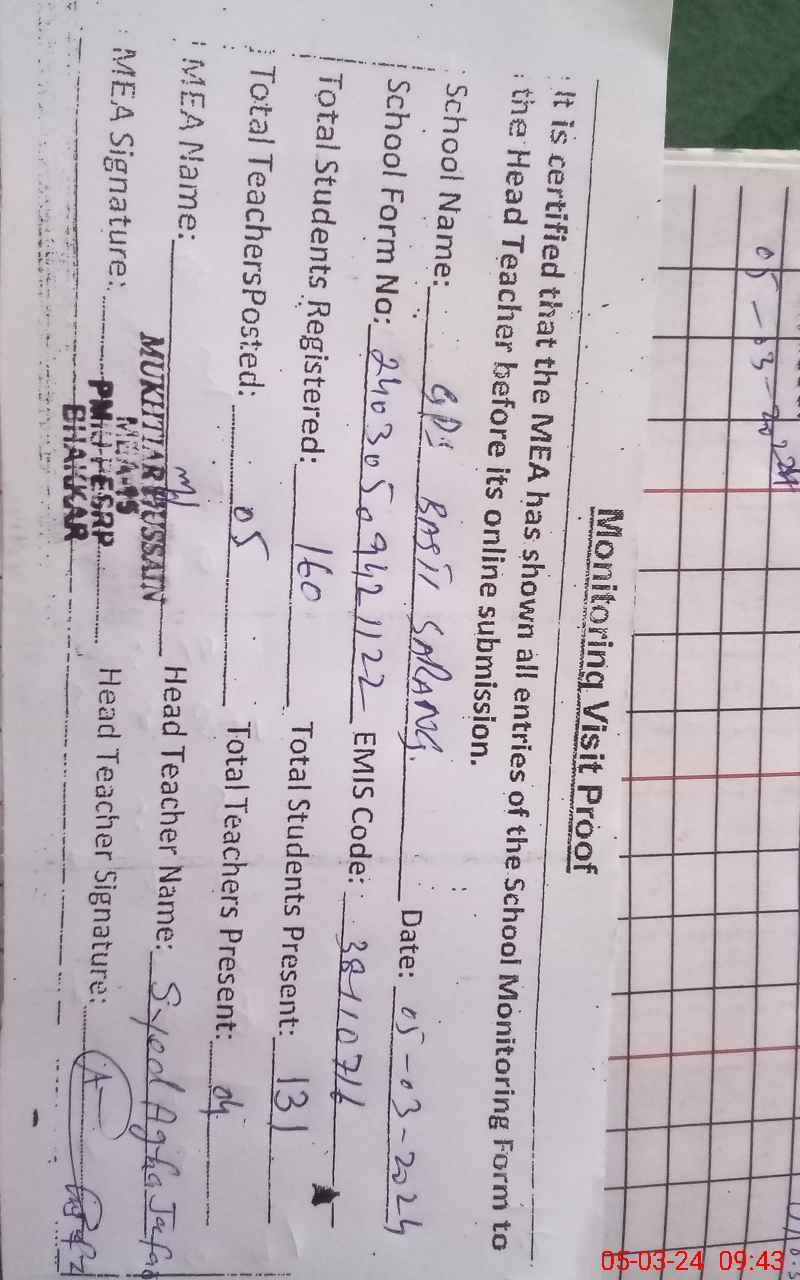 05-03-2024
Monitoring Visit Proof
It is certified that the MEA has shown all entries of the School Monitoring Form to
the Head Teacher before its online submission.
School Name: GPS BASTI SARANG. Date: 05-03-2024
School Form No: 24030509421122 EMIS Code: 38110716
Total Students Registered: 160 Total Students Present: 131
Total Teachers Posted: 05 Total Teachers Present: 04
MEA Name: MUKHTIAR HUSSAIN Head Teacher Name: Syed Agha Jafar
MEA-15
MEA Signature: PMIU-PESRP Head Teacher Signature:
BHAKKAR
05-03-24 09:43